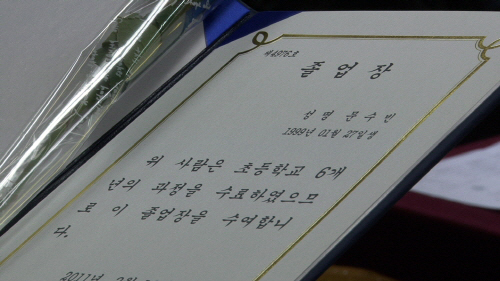 제4976호
졸업장
성명 문수빈
1999년 01월 27일생
위 사람은 초등학교 6개
년의 과정을 수료하였으므
로 이 졸업장을 수여합니
다.
2011년 2월